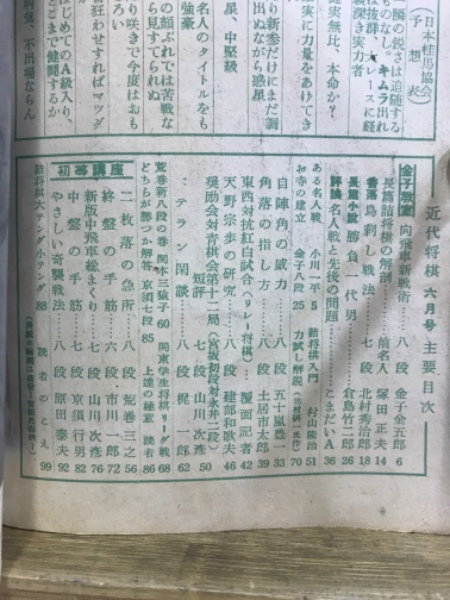 （日本桂馬協会）
（予想表）
一瞬の鋭さは追随する
ものなし。キムラ出れ
ば抜群、大レースに経
験深き実力者
健実無比、本命か？
実に力量をあげてき
り新参だけにまだ調
出ぬながら惑星
星、中堅級
名人のタイトルをも
強豪
の顔ぶれでは苦戦な
ら見すてられぬ
り咲きで今度はおも
ろい
狂わせすればマツダ
はじめてのA級入り、
どこまで健闘するか
気、不出場ならん
近代将棋 六月号 主要目次
金子教室 向飛車新戦術 八段 金子金五郎 6
長篇詰将棋の解剖 前名人 塚田正夫 14
香落 鳥刺し戦法 七段 北村秀治郎 18
長篇小説 勝負一代男 倉島竹二郎 26
評論 名人戦と先後の問題 こまだいA 36
ある名人戦 小川一平 5
詰将棋入門 村山隆治 51
お寺の建立 金子八段 25
力試し解説（北村研一氏作） 70
自陣角の威力 八段 五十嵐豊一 33
角落の指し方 八段 土居市太郎 39
東西対抗紅白試合（リレー将棋） 覆面記者 42
天野宗歩の研究 八段 建部和歌夫 46
奨励会対青棋会第十二局（宮坂初段対永井二段）
短評 七段 山川次彦 50
ベテラン閑談 八段 梶一郎 62
荒巻新八段の巻 関本三猿子 60
関東学生将棋リーグ戦 68
どちらが勝つか解答 京須七段 85
上達の秘室 読者 86
初等講座
二枚落の急所 八段 荒巻三之 56
終盤の手筋 六段 市川一郎 72
新版中飛車総まくり 七段 山川次彦 76
中盤の手筋 七段 京須行男 82
やさしい奇襲戦法 八段 原田泰夫 92
詰将棋大ヤング小ヤング 88
読者のこえ 99